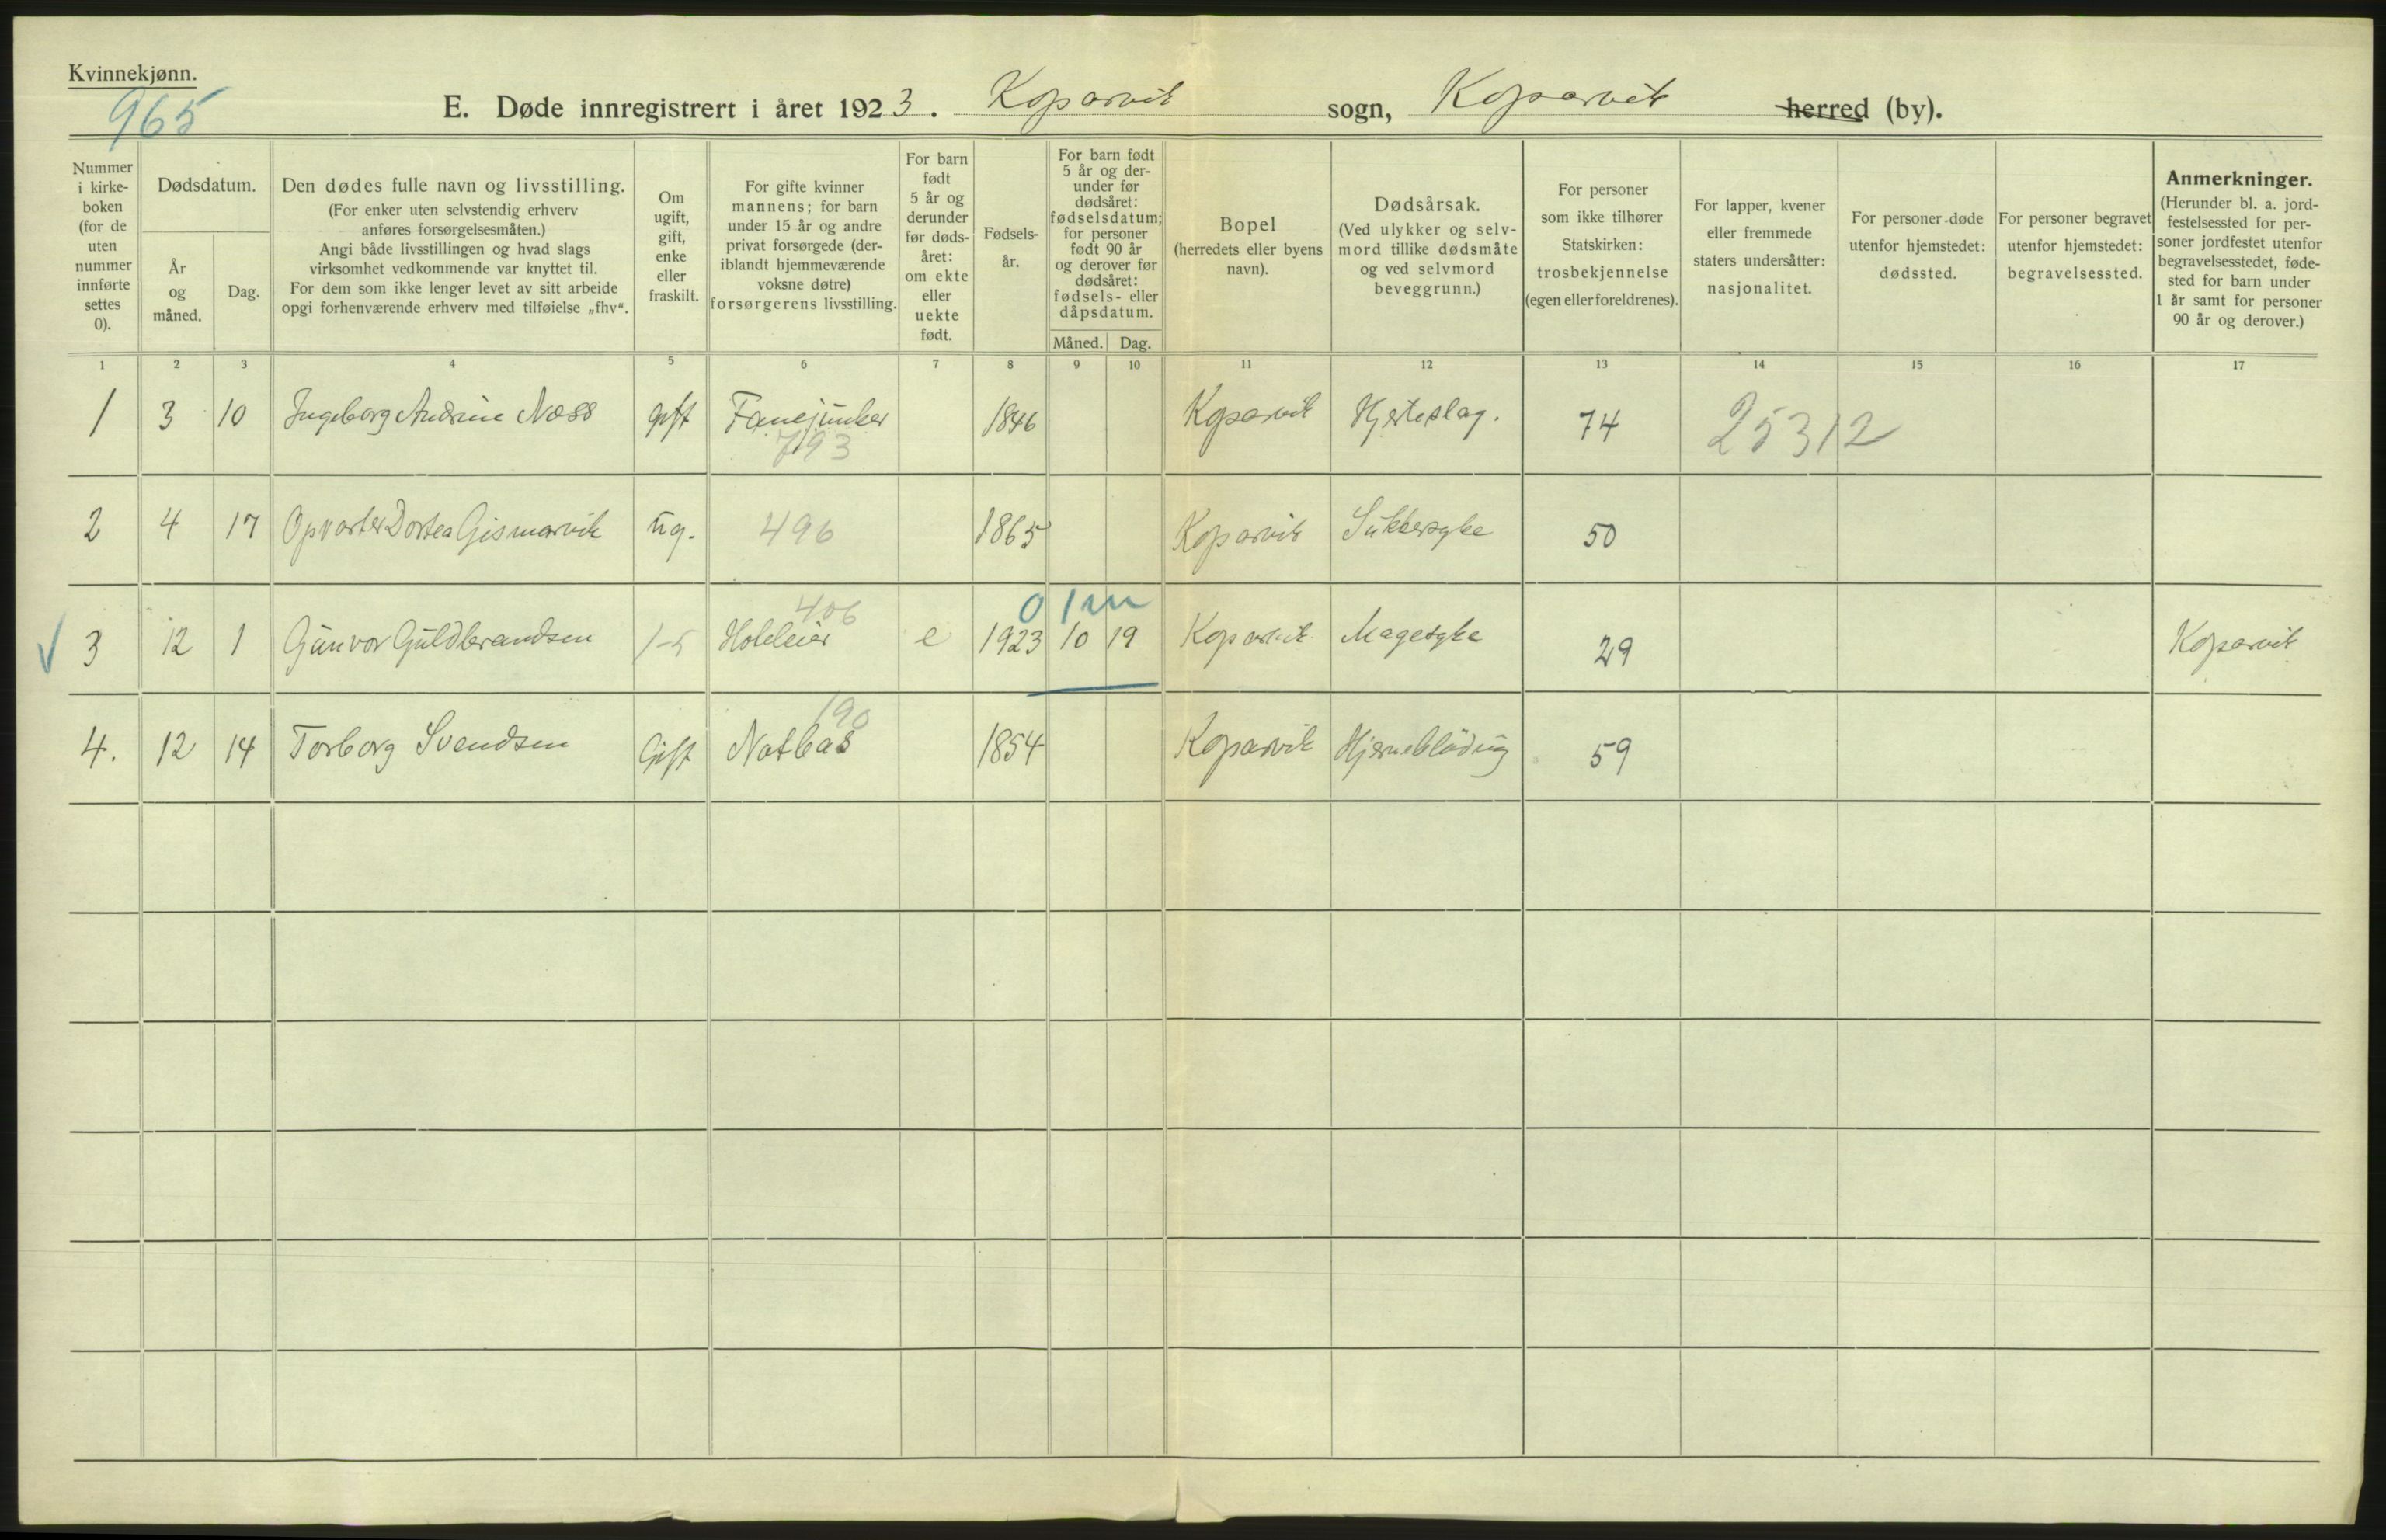 Kvinnekjønn.
965
E. Døde innregistrert i året 1923. Koparvik sogn, Koparvik herred (by).
Nummer i kirke- boken (for de uten nummer innførte settes 0).
Dødsdatum.
År og måned.
Dag.
Den dødes fulle navn og livsstilling.
(For enker uten selvstendig erhverv
anføres forsørgelsesmåten.)
Angi både livsstillingen og hvad slags
virksomhet vedkommende var knyttet til.
For dem som ikke lenger levet av sitt arbeide
opgi forhenværende erhverv med tilføielse „fhv“.
Om
ugift,
gift,
enke
eller
fraskilt.
For gifte kvinner
mannens; for barn
under 15 år og andre
privat forsørgede (der-
iblandt hjemmeværende
voksne døtre)
forsørgerens livsstilling.
For barn
født
5 år og
derunder
før døds-
året:
om ekte
eller
uekte
født.
Fødsels-
år.
For barn født
5 år og der-
under før
dødsåret:
fødselsdatum;
for personer
født 90 år
og derover før
dødsåret:
fødsels- eller
dåpsdatum.
Måned. Dag.
Bopel
(herredets eller byens
navn).
Dødsårsak.
(Ved ulykker og selv-
mord tillike dødsmåte
og ved selvmord
beveggrunn.)
For personer
som ikke tilhører
Statskirken:
trosbekjennelse
(egen eller foreldrenes).
For lapper, kvener
eller fremmede
staters undersåtter:
nasjonalitet.
For personer døde
utenfor hjemstedet:
dødssted.
For personer begravet
utenfor hjemstedet:
begravelsessted.
Anmerkninger.
(Herunder bl. a. jord-
festelsessted for per-
soner jordfestet utenfor
begravelsesstedet, føde-
sted for barn under
1 år samt for personer
90 år og derover.)
1 2 3 4 5 6 7 8 9 10 11 12 13 14 15 16 17
1 3 10 Ingeborg Andrine Næss gift Fanejunker 1846 Koparvik Hjerteslag. 74 25312
793
2 4 17 Opvarter Dortea Gismarvik ug. 496 1865 Koparvik Sukkersyke 50
406 0 1 m
3 12 1 Gunvor Guldbrandsen Hoteleier e 1923 10 19 Koparvik Magesyke 29 Koparvik
190
4. 12 14 Torborg Svendsen Gift Notbas 1854 Koparvik Hjerneblødning 59